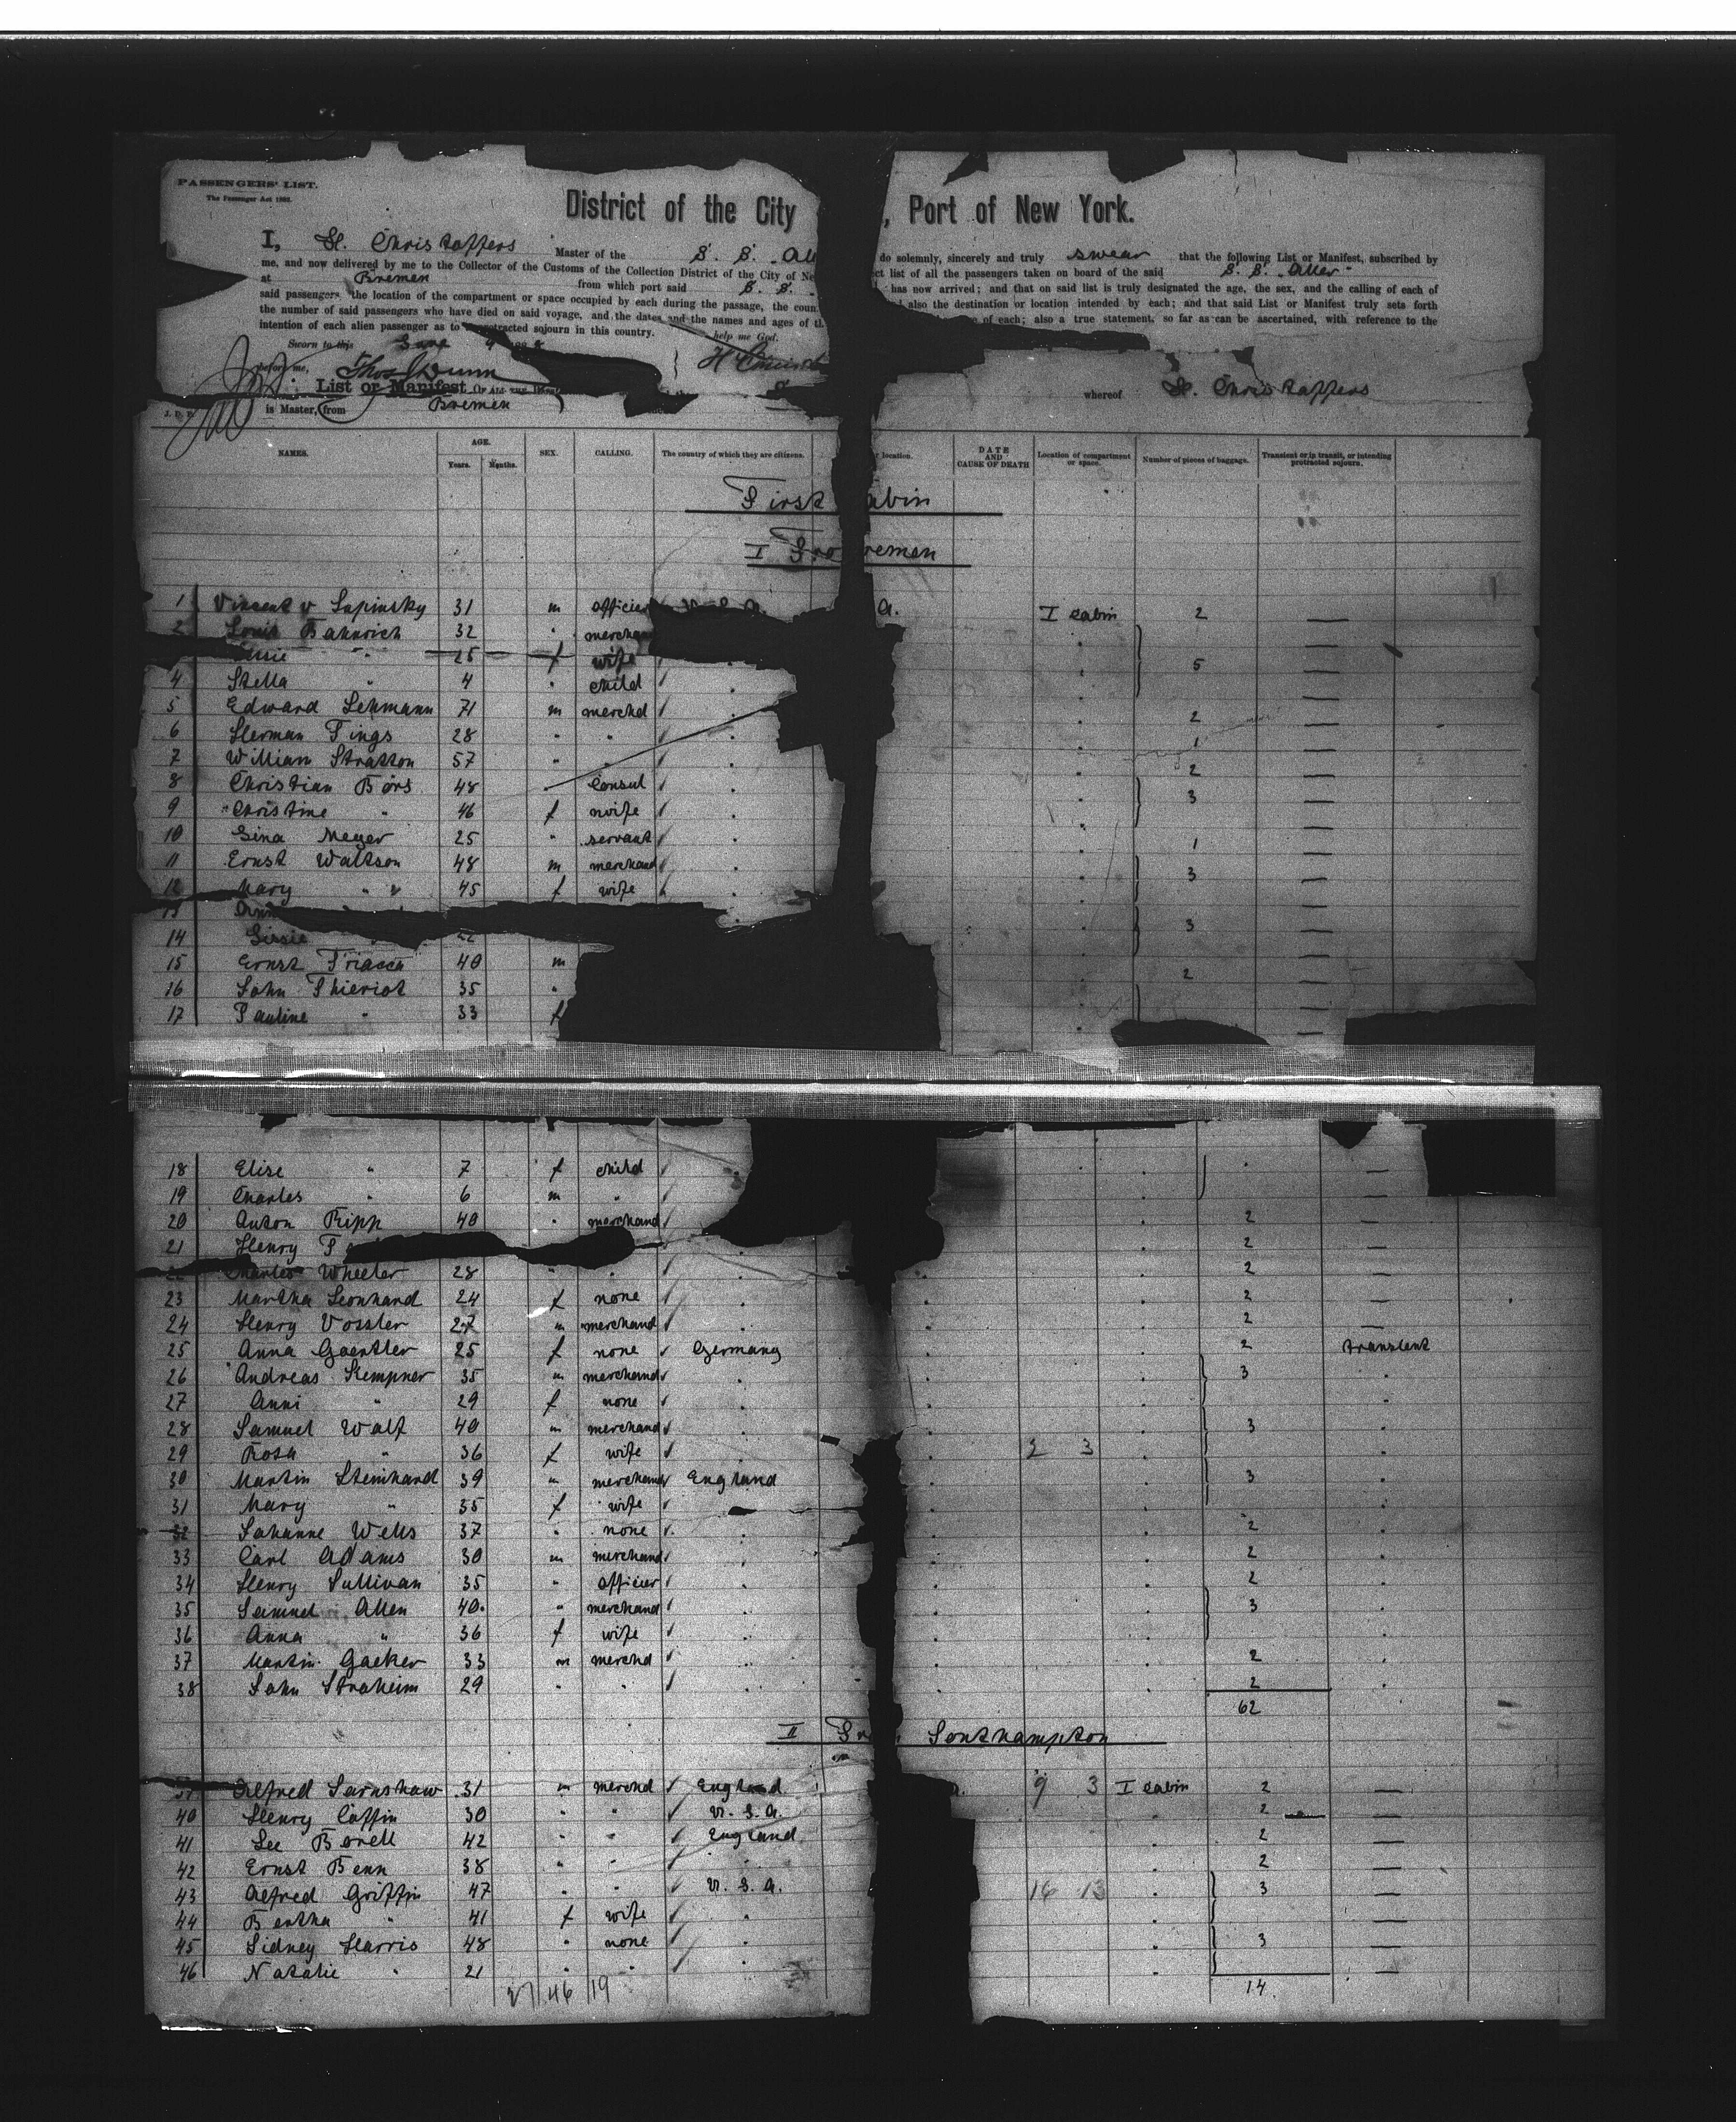 PASSENGERS' LIST.
The Passenger Act 1882.
District of the City , Port of New York.
I, H. Christoffers Master of the S. S. All do solemnly, sincerely and truly swear that the following List or Manifest, subscribed by
me, and now delivered by me to the Collector of the Customs of the Collection District of the City of Ne ct list of all the passengers taken on board of the said S. S. Aller
at Bremen from which port said S. S. has now arrived; and that on said list is truly designated the age, the sex, and the calling of each of
said passengers the location of the compartment or space occupied by each during the passage, the coun also the destination or location intended by each; and that said List or Manifest truly sets forth
the number of said passengers who have died on said voyage, and the dates and the names and ages of th of each; also a true statement, so far as can be ascertained, with reference to the
intention of each alien passenger as to protracted sojourn in this country. help me God.
Sworn to this June 9
before me, Thos Dunn
List or Manifest OF ALL THE whereof H. Christoffers
J. D. D. is Master, from Bremen
NAMES. AGE. SEX. CALLING. The country of which they are citizens. location. DATE AND CAUSE OF DEATH Location of compartment or space. Number of pieces of baggage. Transient or in transit, or intending protracted sojourn.
Years. Months.
First abin
I Fro remen
1 Vincent v Lupinsky 31 m officier a. I cabin 2 —
2 Louis Bahnrich 32 " merchan —
ssie " 25 f wife 5 —
4 Stella " 4 " child —
5 Edward Lehmann 71 m merchd 2 —
6 Herman Tings 28 " " 1 —
7 William Stratton 57 " " 2 —
8 Christian Börs 48 " Consul 3 —
9 Christine " 46 f wife —
10 Gina Meyer 25 " servant 1 —
11 Ernst Waltson 48 m merchand 3 —
12 Mary " " 45 f wife —
13 Ann 3 —
14 Gissie 22 —
15 Ernst Triacca 40 m 2 —
16 John Thieriot 35 " —
17 Pauline " 33 f —
18 Elise " 7 f child —
19 Charles " 6 m " —
20 Anton Ripp 40 " merchand 2 —
21 Henry 2 —
22 Charles Wheeler 28 " " 2 —
23 Martha Leonhard 24 f none 2 —
24 Henry Vossler 27 m merchand 2 —
25 Anna Gaertler 25 f none Germany 2 transient
26 Andreas Kempner 35 m merchand 3 "
27 Anni " 29 f none "
28 Samuel Walf 40 m merchand 3 "
29 Rosa " 36 f wife 2 3 "
30 Martin Steinhard 39 m merchand England 3 "
31 Mary " 35 f wife "
32 Johanne Wells 37 " none 2 "
33 Carl Adams 30 m merchand 2 "
34 Henry Sullivan 35 " officier 2 "
35 Samuel Allen 40 " merchand 3 "
36 Anna " 36 f wife "
37 Martin Gaeker 33 m merchd 2 "
38 John Straheim 29 " " 2 "
62
II Fr Southampton
39 Alfred Earnshaw 31 m merchd England 9 3 I cabin 2 —
40 Henry Coffin 30 " " U. S. A. 2 —
41 Lee Borell 42 " " England 2 —
42 Ernst Benn 38 " " " 2 —
43 Alfred Griffin 47 " " U. S. A. 16 13 3 —
44 Bertha " 41 f wife " —
45 Sidney Harris 48 " none " 3 —
46 Natalie " 21 " " " —
27 46 19 14.